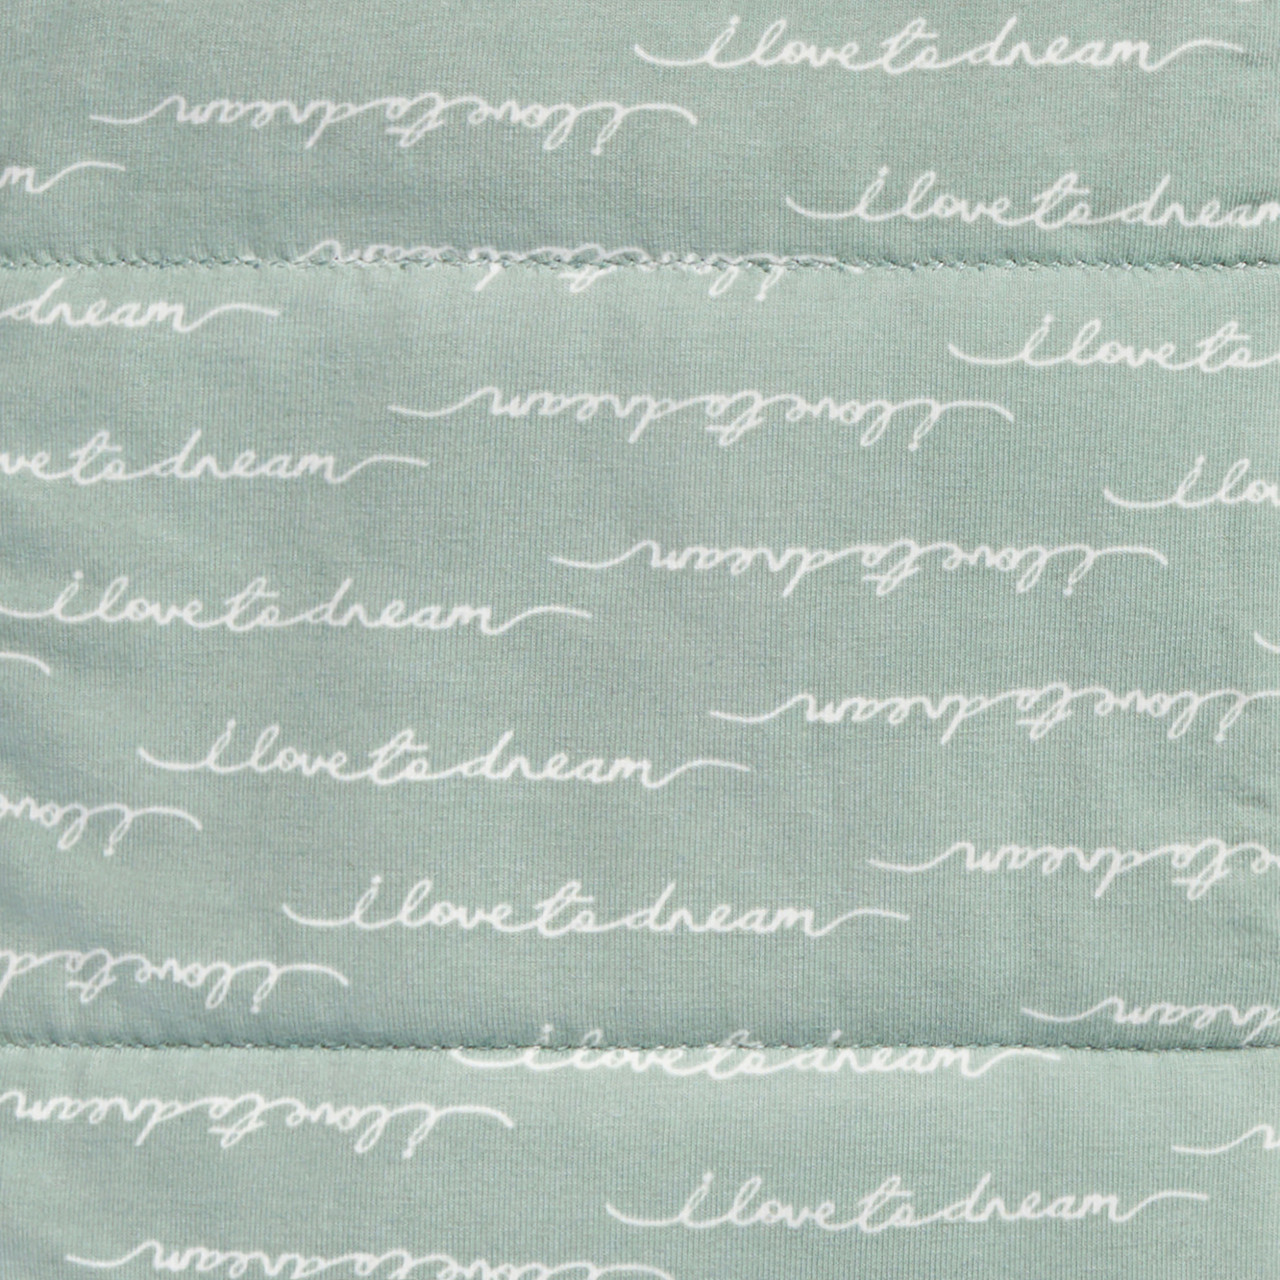 i love to dream
i love to dream
m
i love to dream
i love to dream
dream
i love to
i love to dream
ve to dream
i lo
i love to dream
i love to dream
i love to dream
i love to dream
i love
e to dream
i love to dream
i love to d
dream
i love to dream
i love to dream
i love to dream
i love to dream